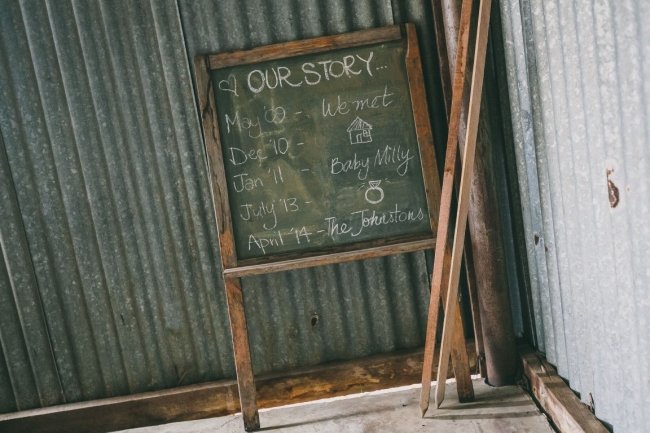 OUR STORY...
May '09 - We met
Dec '10 -
Jan '11 - Baby Milly
July '13 -
April '14 - The Johnstons